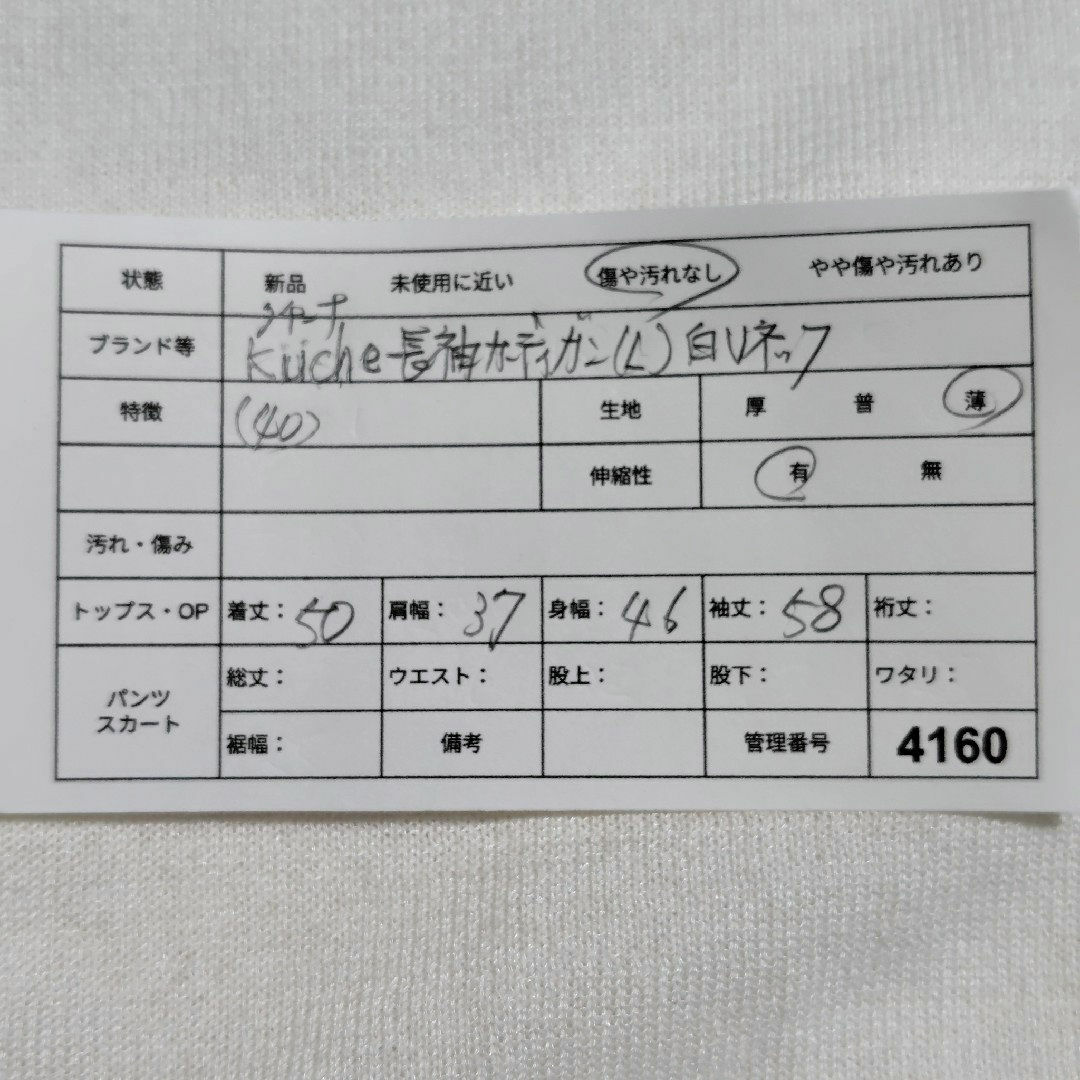 状態 新品 未使用に近い 傷や汚れなし やや傷や汚れあり
ブランド等 Küche 長袖カーディガン(L) 白Vネック
特徴 (40) 生地 厚 普 薄
伸縮性 有 無
汚れ・傷み
トップス・OP 着丈：50 肩幅：37 身幅：46 袖丈：58 裄丈：
パンツ スカート 総丈： ウエスト： 股上： 股下： ワタリ：
裾幅： 備考 管理番号 4160